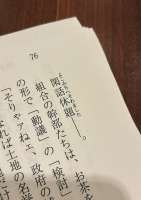 76
閑話休題――。
組合の幹部たちは、お茶を
の形で、「動議」の「検討
「そりゃァねェ、政府の
れは土地の名